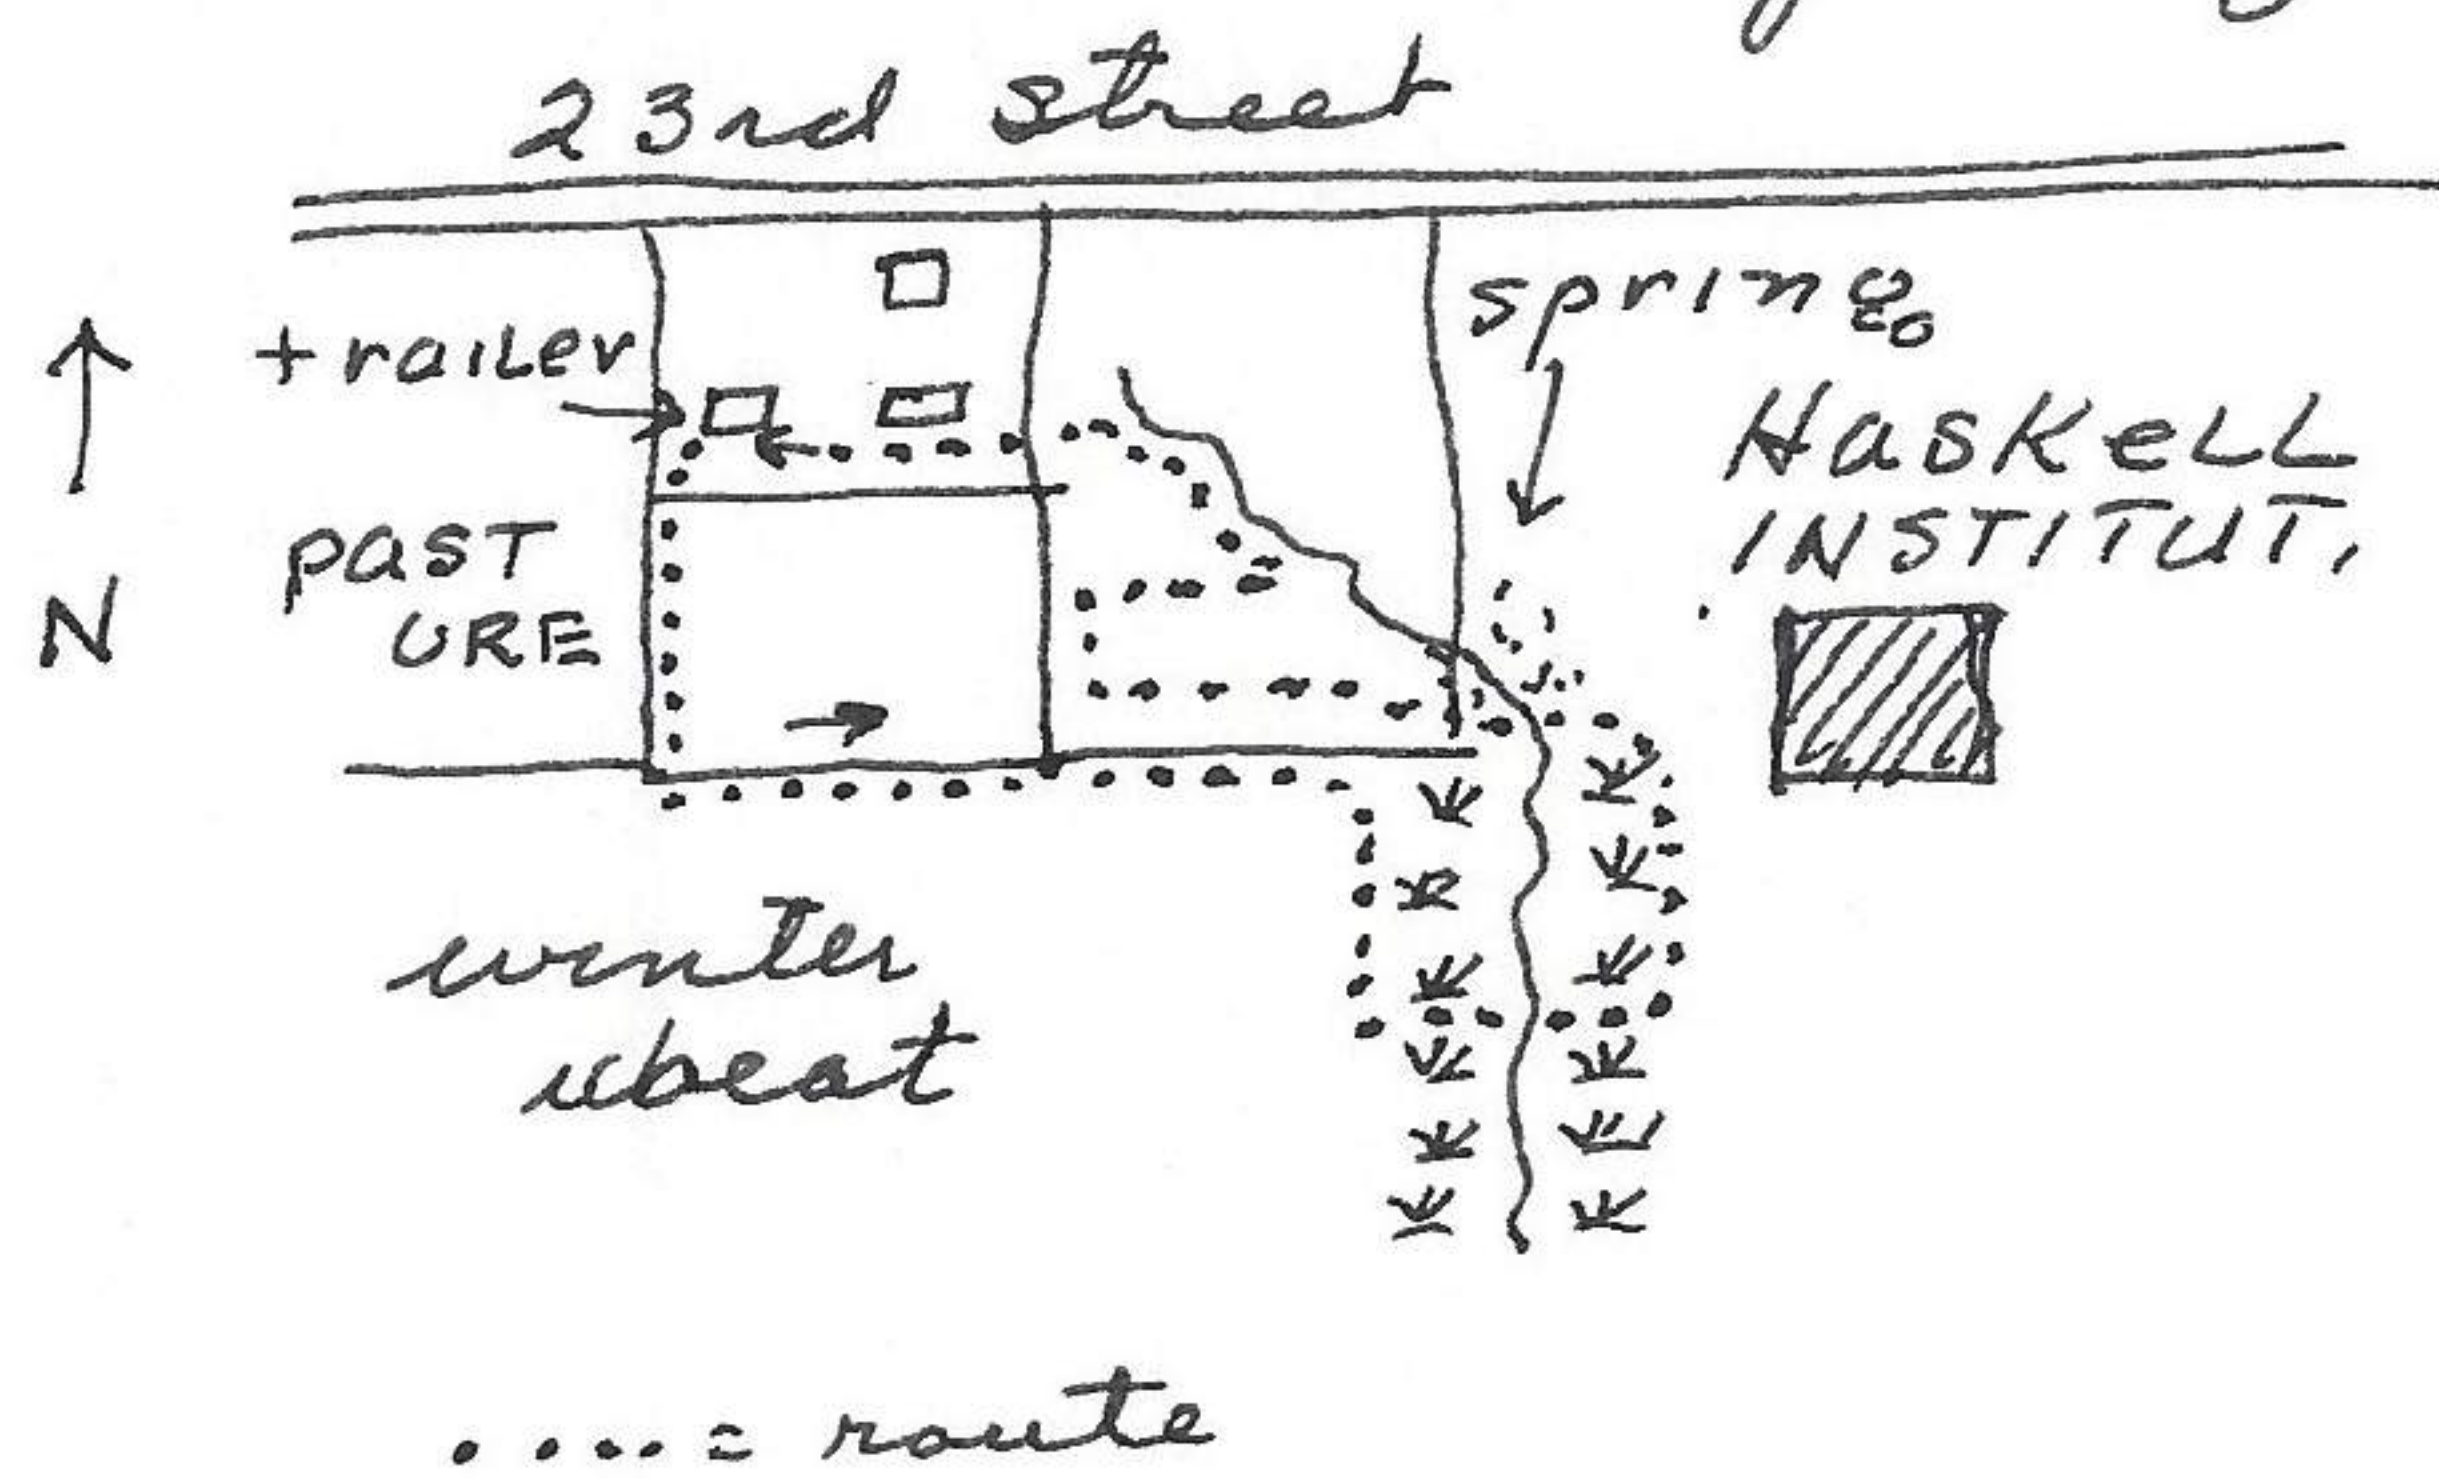 23rd street
spring
trailer
HasKeLL
INSTITUT.
pasT
URE
N
winter
wheat
.....= route